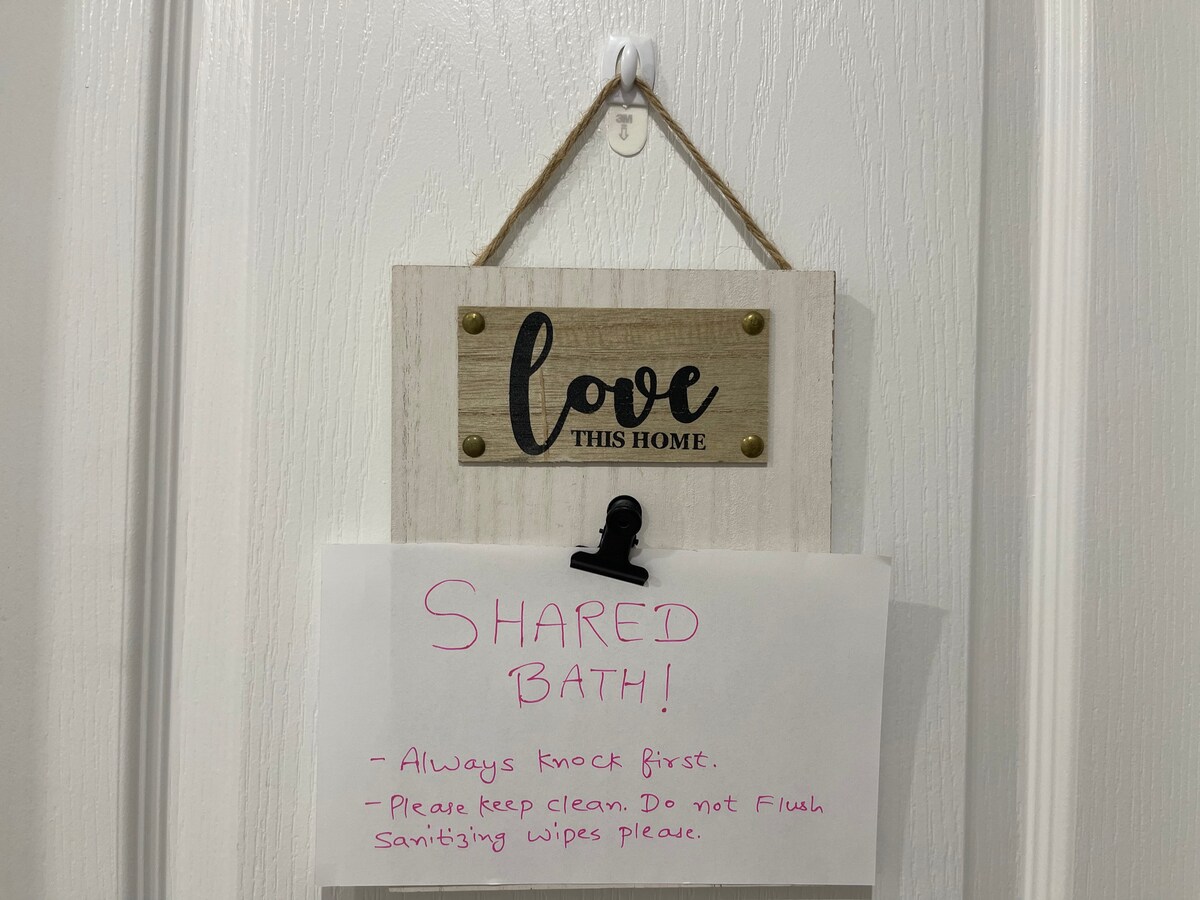 3M
love
THIS HOME
SHARED
BATH!
- Always knock first.
- Please keep clean. Do not Flush
Sanitizing wipes please.